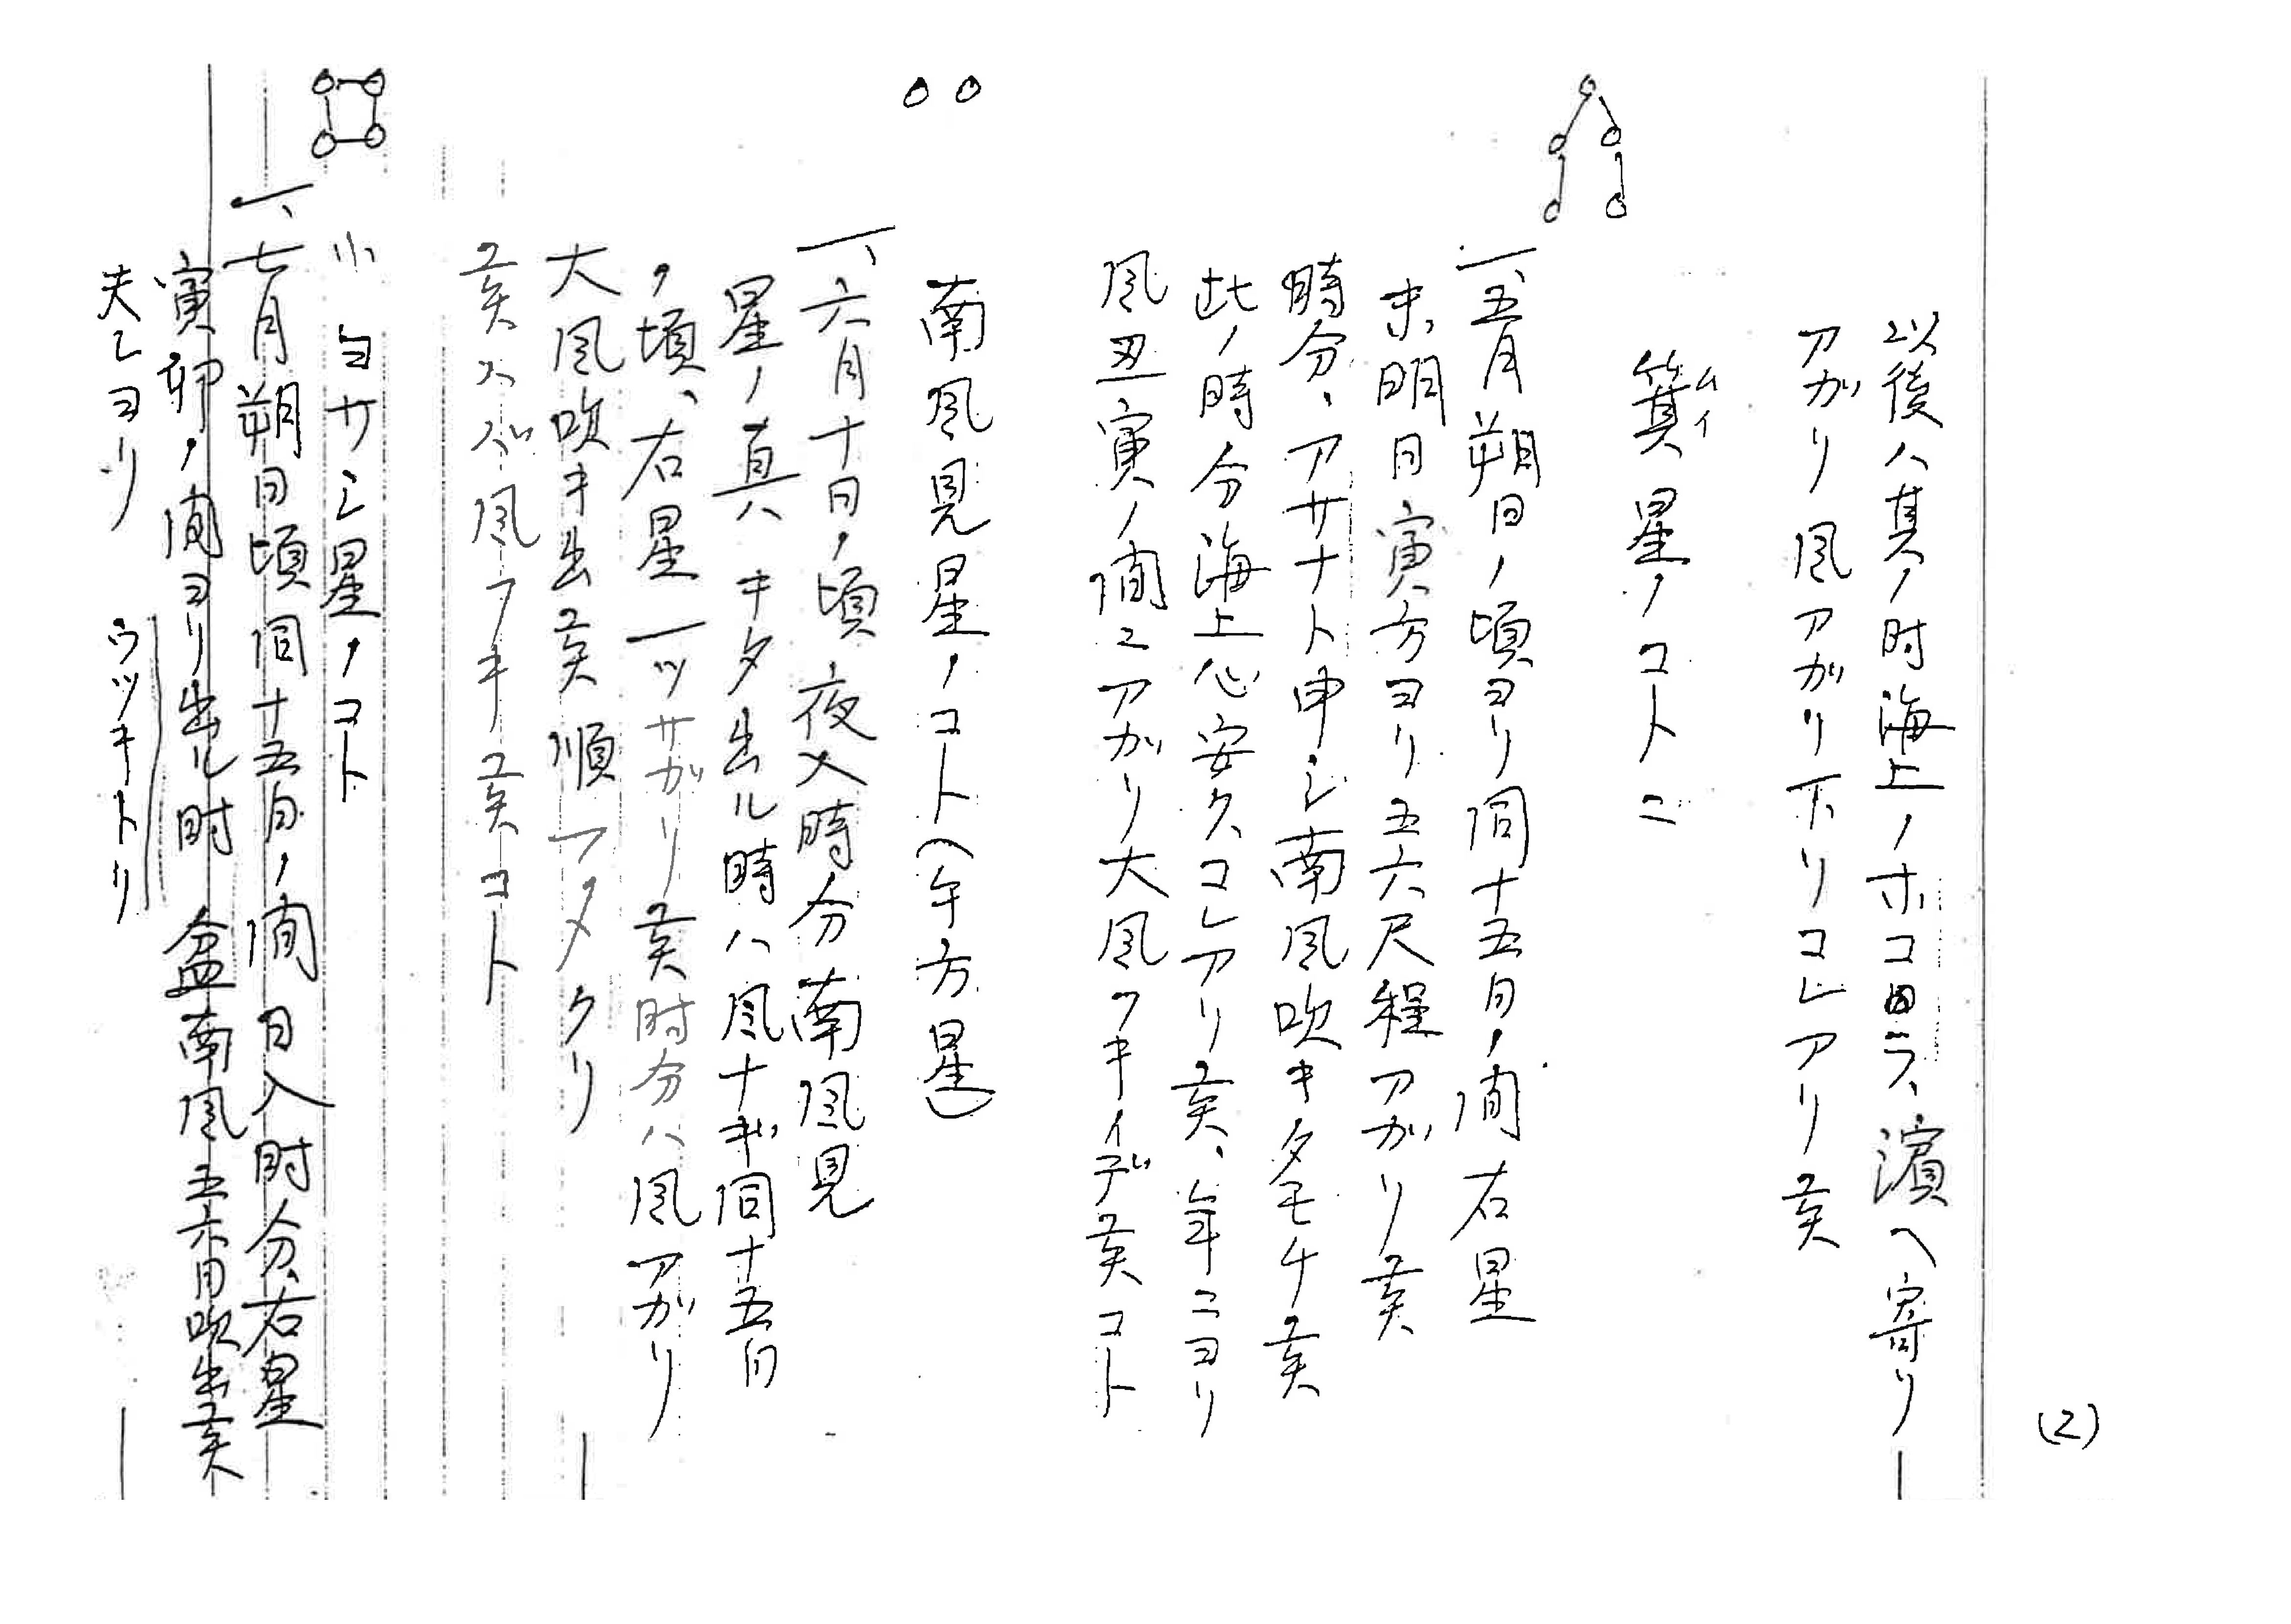 (2)
以後ハ其ノ时海上ノホコロラ、濱ヘ寄リ
アガリ風アガリ下リコレアリ𠅘
箕星ノコト二
ムイ
一、五月朔日ノ頃ヨリ同十五日ノ間右星
未明日寅方ヨリ五六尺程アガリ𠅘
時分、アサナト申シ南風吹キタモチ𠅘
此ノ時分海上心安ク、コレアリ𠅘、年ニヨリ
風丑寅ノ間ニアガリ大風フキイデ𠅘コト
南風見星ノコト(午方星)
一、六月十日ノ頃夜入時分南風見
星ノ真ハキタ出ル時ハ風ナギ同十五日
ノ頃、右星一ツサガリ𠅘时分ハ風アガリ
大風吹キ出𠅘順アメクリ
𠅘ヘバ風フキ𠅘コト
小ヨサシ星ノコト
一、七月朔日頃同十五日ノ間日入时分、右星
寅卯ノ間ヨリ出ル时盆南風五六日吹出𠅘
夫レヨリウツキトリ